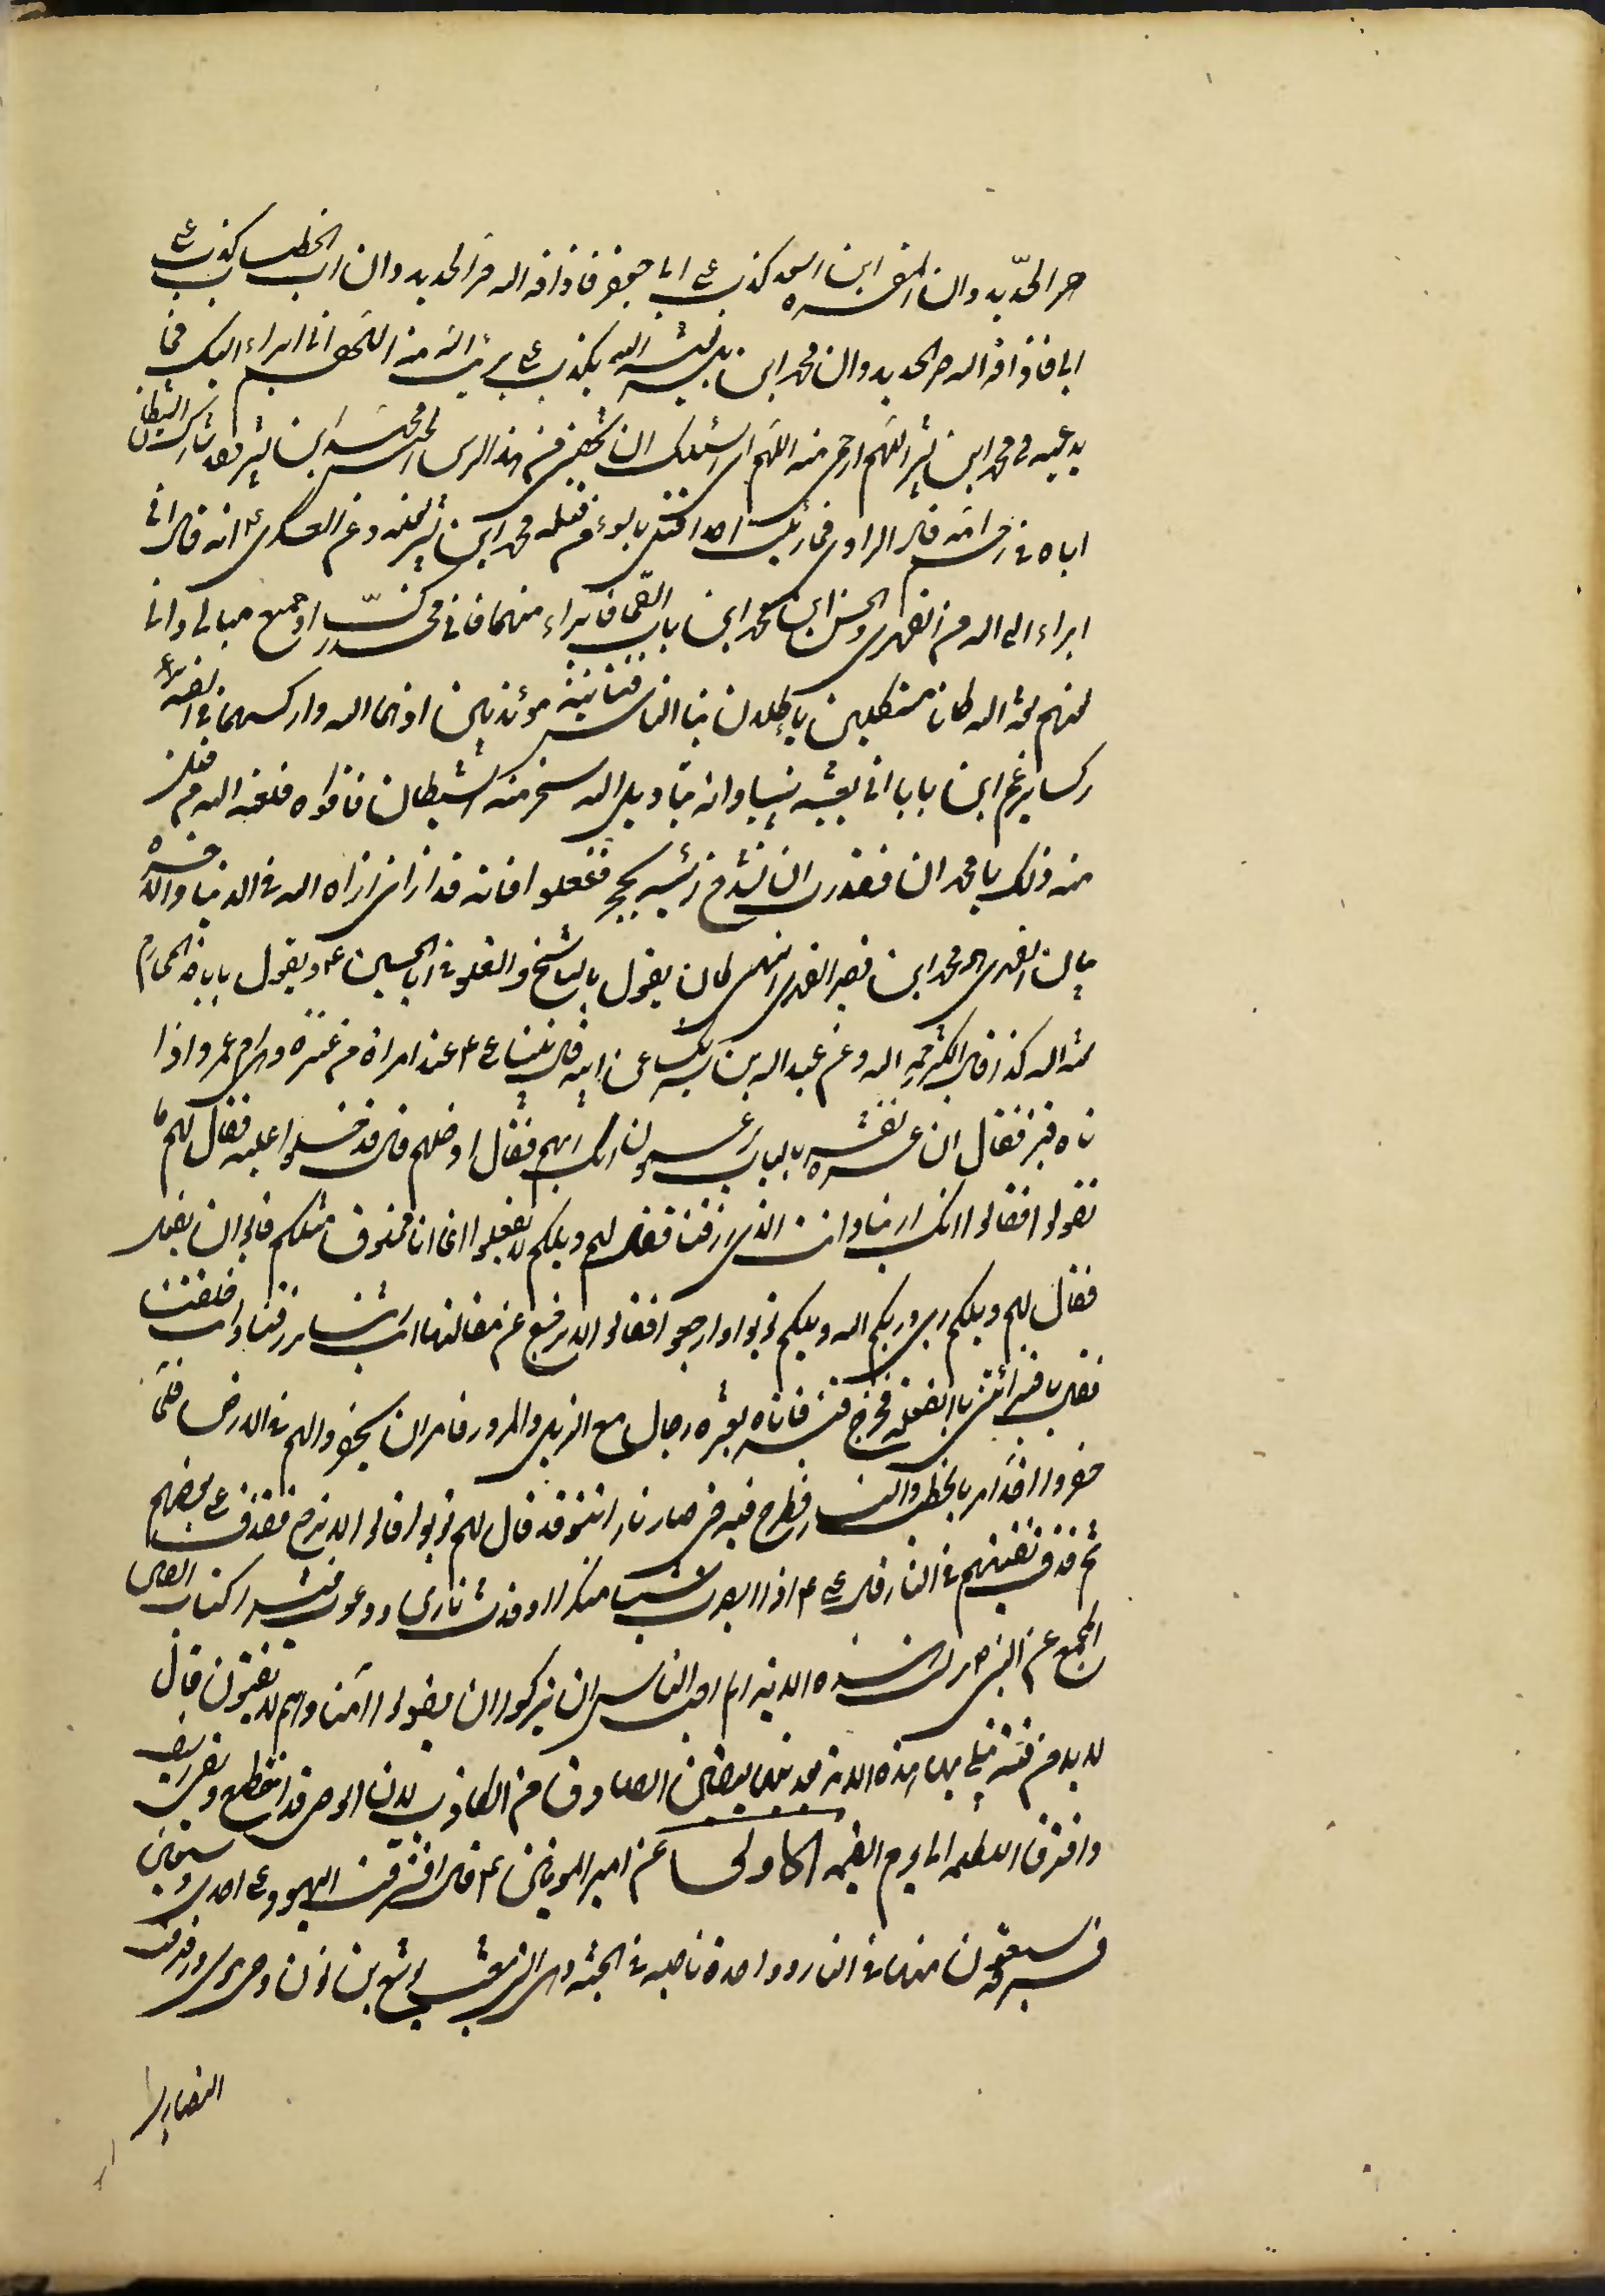 حر الحدید وان المغیره ابن السعد کذب علی ابا جعفر فاذاقه الله حر الحدید وان ابا الخطاب کذب علی
ابی فاذاقه الله حر الحدید وان محمد ابن بشیر لعنه الله یکذب علی برئت الی الله منه اللهم انی ابراء الیک مما
یدعیه فی محمد ابن بشیر اللهم ارحنی منه اللهم انی اسئلک ان تخلصنی من هذا الرجس النجس محمد ابن بشیر فقد شارک الشیطان
اباه فی رحم امه قال الراوی فما رئیت احدا قتل باسوء من قتله محمد ابن بشیر لعنه وعن العسکری ع انه قال انی
ابراء الی الله من الفهری والحسن ابن محمد ابن بابا القمی فابراء منهما فانی محذرک وجمیع موالی وانی
لعنهم لعنه الله کانا مستکلین یاکلان بنا الناس فتانین موذیین اذاهما الله وارکسهما فی الفتنه
رکسا یزعم ابن بابا انی بعثته نبیا وانه باب ویله الله سخر منه الشیطان فاغواه فلعن الله من قبل
منه ذلک یا محمد ان قدرت ان تشدخ رئسه بحجر فافعل فانه قد اذانی اذاه الله فی الدنیا والاخره
بیان الفهری هو محمد ابن نصیر الفهری النمیری کان یقول بالتناسخ والغلو فی ابی الحسین ع ویقول باباحه المحارم
لعنه الله کذا قال الکشی رحمه الله وعن عبد الله بن شریک عن ابیه قال بینا علی ع عند امراة من عنزه وهی ام عمرو اذا
تاه قنبر فقال ان عشره نفر بالباب یزعمون انک ربهم فقال ادخلهم قال فدخلوا علیه فقال لهم ما
تقولوا فقالوا انک ربنا وانت الذی رزقتنا فقال لهم ویلکم لا تفعلوا انما انا مخلوق مثلکم فابوا ان یفعلوا
فقال لهم ویلکم ربی وربکم الله ویلکم توبوا وارجعوا فقالوا لا نرجع عن مقالتنا انت ربنا ترزقنا وانت خلقتنا
فقال یا قنبر ائتنی بالفعله فخرج قنبر فاتاه بعشره رجال مع الزبل والمرور فامر ان یحفروا لهم فی الارض فلما
حفروا خدا امر بالحطب والنار فطرح فیه حتی صار نارا تتوقد قال لهم توبوا قالوا لا نرجع فقذف علی بعضهم
ثم قذف بقیتهم فی النار قال علی ع اذا ابصرت شیئا منکرا اوقدت ناری ودعوت قنبرا کتاب الصافی
المجمع عن النبی ص لما نزلت هذه الایه الم احسب الناس ان یترکوا ان یقولوا امنا وهم لا یفتنون قال
لا بد من فتنه یبتلی بها هذه الامه بعد نبیها لیتعین الصادق من الکاذب لان الوحی قد انقطع وبقی السیف
وافتراق الکلمه الی یوم القیمه الکافی عن امیر المومنین ع قال افترقت الیهود علی احدی وسبعین
فرقه سبعون منها فی النار وواحدة ناجیه فی الجنه وهی التی اتبعت یوشع بن نون وصی موسی وافترقت
النصاری